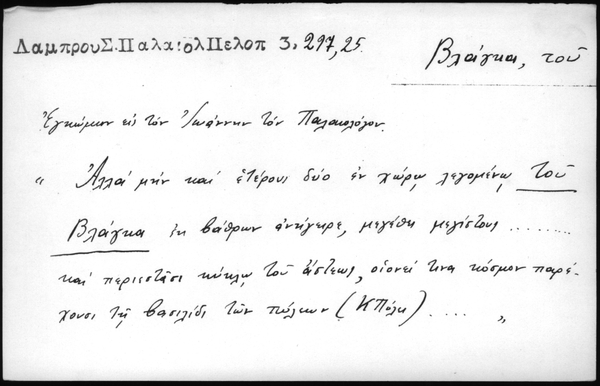 ΛαμπρουΣ.ΠαλαιολΠελοπ 3. 297, 25. Βλάγκα, τοῦ
Ἐγκώμιον εἰς τὸν Ἰωάννην τὸν Παλαιολόγον.
" Ἀλλά μήν καί ἑτέρους δύο ἐν χώρῳ λεγομένῳ τοῦ
Βλάγκα ἐκ βάθρων ἀνήγειρε, μεγέθη μεγίστους ..........
καί περιεστᾶσι κύκλῳ τοῦ ἄστεως, οἱονεί τινα κόσμον παρέ-
χουσι τῇ βασιλίδι τῶν πόλεων (ΚΠόλη) .... "